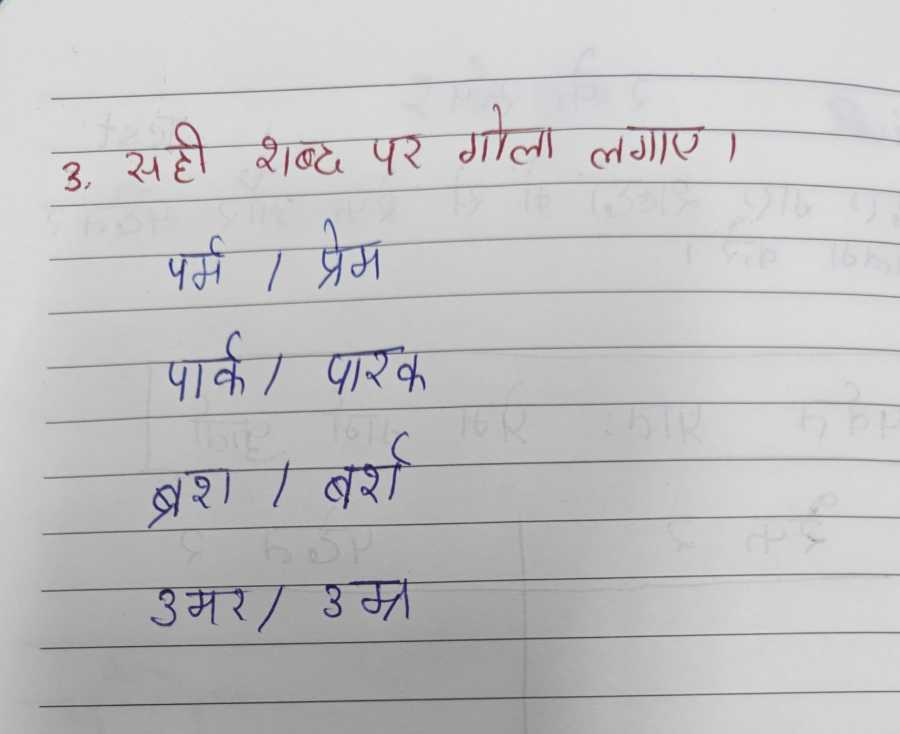 3. सही शब्द पर गोला लगाए।
पर्म / प्रेम
पार्क / पारक
ब्रश / बर्श
उमर / उम्र